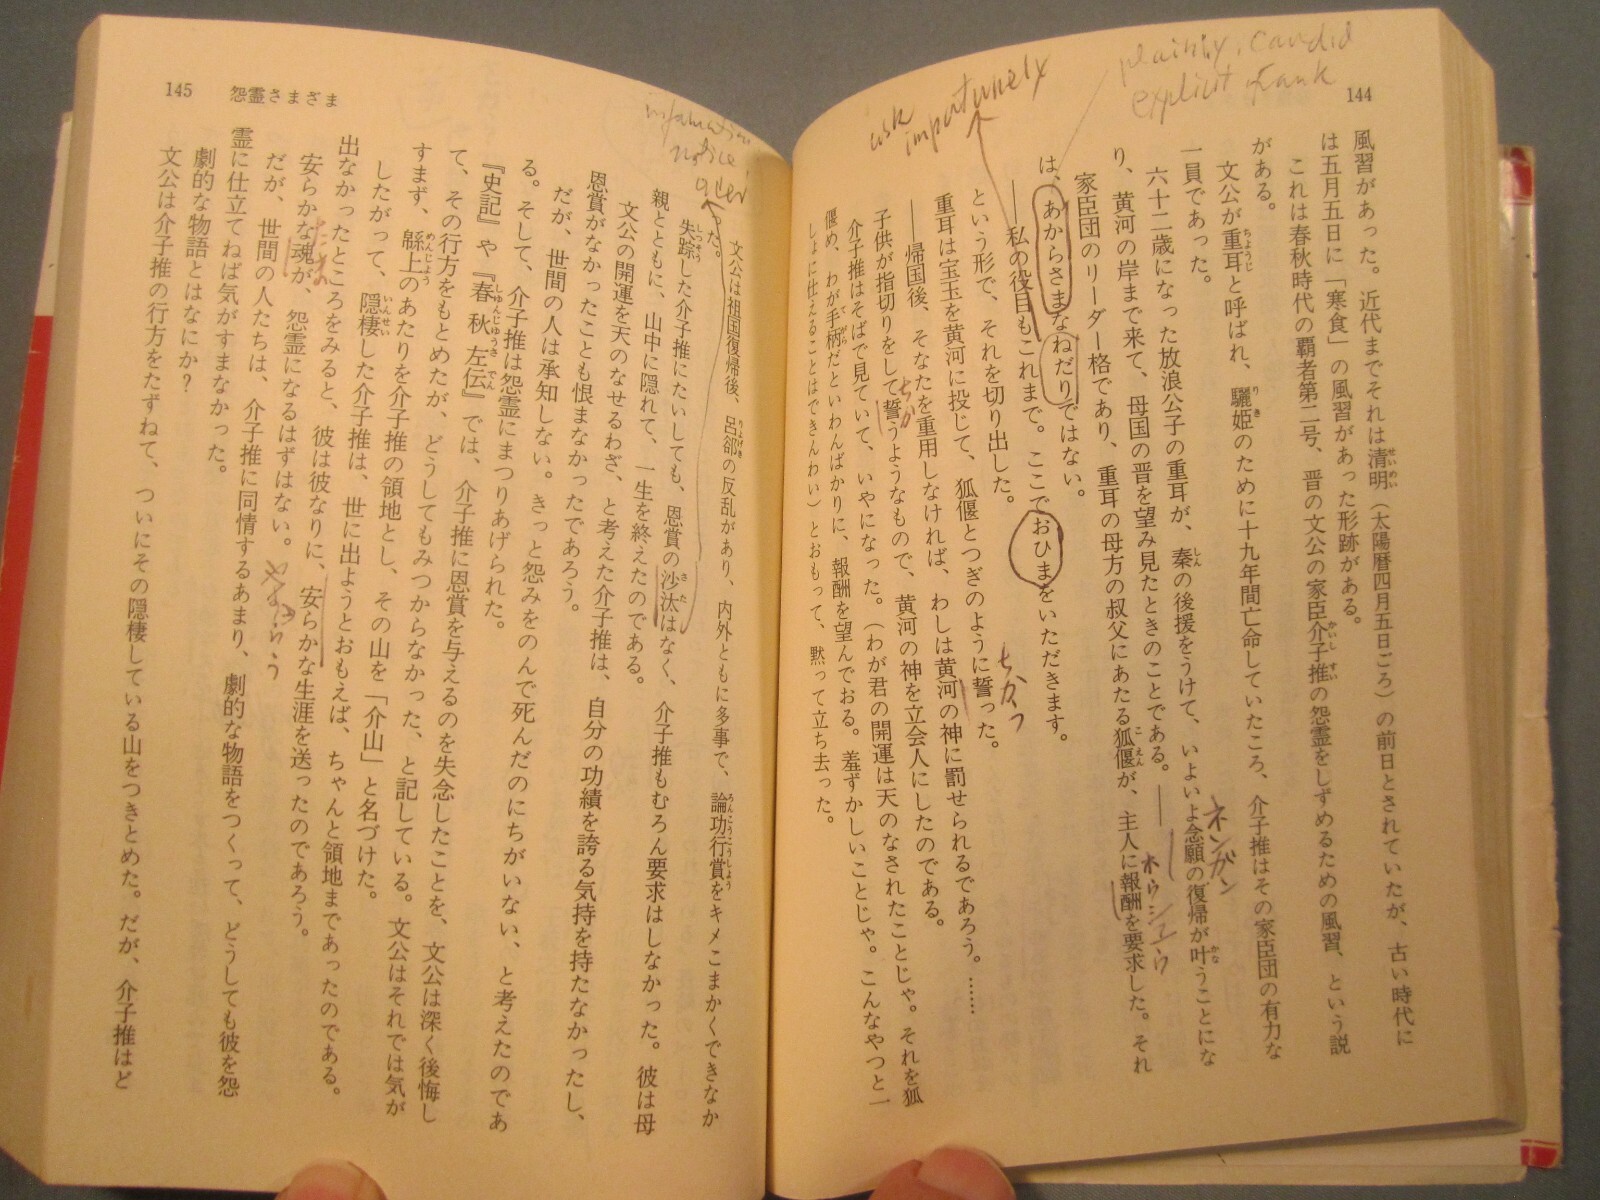 144
plainly, candid
explicit frank
ask
importunely
風習があった。近代までそれは清明（太陽暦四月五日ごろ）の前日とされていたが、古い時代に
は五月五日に「寒食」の風習があった形跡がある。
これは春秋時代の覇者第二号、晋の文公の家臣介子推の怨霊をしずめるための風習、という説
がある。
文公が重耳と呼ばれ、驪姫のために十九年間亡命していたころ、介子推はその家臣団の有力な
一員であった。
六十二歳になった放浪公子の重耳が、秦の後援をうけて、いよいよ念願の復帰が叶うことにな
ネンガン
り、黄河の岸まで来て、母国の晋を望み見たときのことである。――
家臣団のリーダー格であり、重耳の母方の叔父にあたる狐偃が、主人に報酬を要求した。それ
ホウシュウ
は、あからさまなねだりではない。
――私の役目もこれまで。ここでおひまをいただきます。
という形で、それを切り出した。
重耳は宝玉を黄河に投じて、狐偃とつぎのように誓った。
ちかっ
――帰国後、そなたを重用しなければ、わしは黄河の神に罰せられるであろう。……
子供が指切りをして誓うようなもので、黄河の神を立会人にしたのである。
ちか
介子推はそばで見ていて、いやになった。（わが君の開運は天のなされたことじゃ。それを狐
偃め、わが手柄だといわんばかりに、報酬を望んでおる。羞ずかしいことじゃ。こんなやつと一
しょに仕えることはできんわい）とおもって、黙って立ち去った。
145 怨霊さまざま
notice
文公は祖国復帰後、呂郤の反乱があり、内外ともに多事で、論功行賞をキメこまかくできなか
った。
失踪した介子推にたいしても、恩賞の沙汰はなく、介子推もむろん要求はしなかった。彼は母
親とともに、山中に隠れて、一生を終えたのである。
文公の開運を天のなせるわざ、と考えた介子推は、自分の功績を誇る気持を持たなかったし、
恩賞がなかったことも恨まなかったであろう。
だが、世間の人は承知しない。きっと怨みをのんで死んだのにちがいない、と考えたのであ
る。そして、介子推は怨霊にまつりあげられた。
『史記』や『春秋左伝』では、介子推に恩賞を与えるのを失念したことを、文公は深く後悔し
て、その行方をもとめたが、どうしてもみつからなかった、と記している。文公はそれでは気が
すまず、緜上のあたりを介子推の領地とし、その山を「介山」と名づけた。
したがって、隠棲した介子推は、世に出ようとおもえば、ちゃんと領地まであったのである。
出なかったところをみると、彼は彼なりに、安らかな生涯を送ったのであろう。
安らかな魂が、怨霊になるはずはない。
だが、世間の人たちは、介子推に同情するあまり、劇的な物語をつくって、どうしても彼を怨
霊に仕立てねば気がすまなかった。
劇的な物語とはなにか？
文公は介子推の行方をたずねて、ついにその隠棲している山をつきとめた。だが、介子推はど